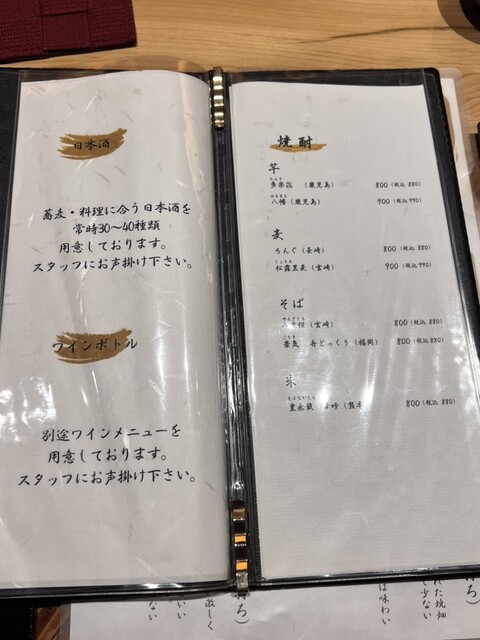 日本酒
蕎麦・料理に合う日本酒を
常時30〜40種類
用意しております。
スタッフにお声掛け下さい。
ワインボトル
別途ワインメニューを
用意しております。
スタッフにお声掛け下さい。
焼酎
芋
(鹿児島) 800 (税込 880)
八幡 (鹿児島) 900 (税込 990)
麦
ちんぐ (長崎) 800 (税込 880)
松露黒麦 (宮崎) 900 (税込 990)
そば
(宮崎) 800 (税込 880)
舟どっくり (福岡) 800 (税込 880)
米
豊永蔵 800 (税込 880)
れた焼畑
で少ない
は味わい